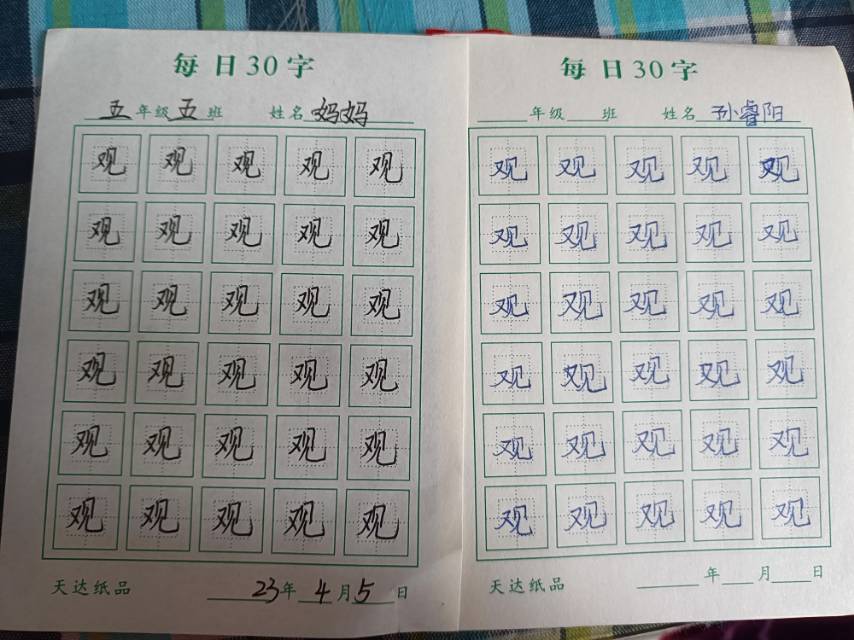 每日30字
五年级五班 姓名 妈妈
观 观 观 观 观
观 观 观 观 观
观 观 观 观 观
观 观 观 观 观
观 观 观 观 观
观 观 观 观 观
天达纸品 23年4月5日
每日30字
年级 班 姓名 孙睿阳
观 观 观 观 观
观 观 观 观 观
观 观 观 观 观
观 观 观 观 观
观 观 观 观 观
观 观 观 观 观
天达纸品 年 月 日